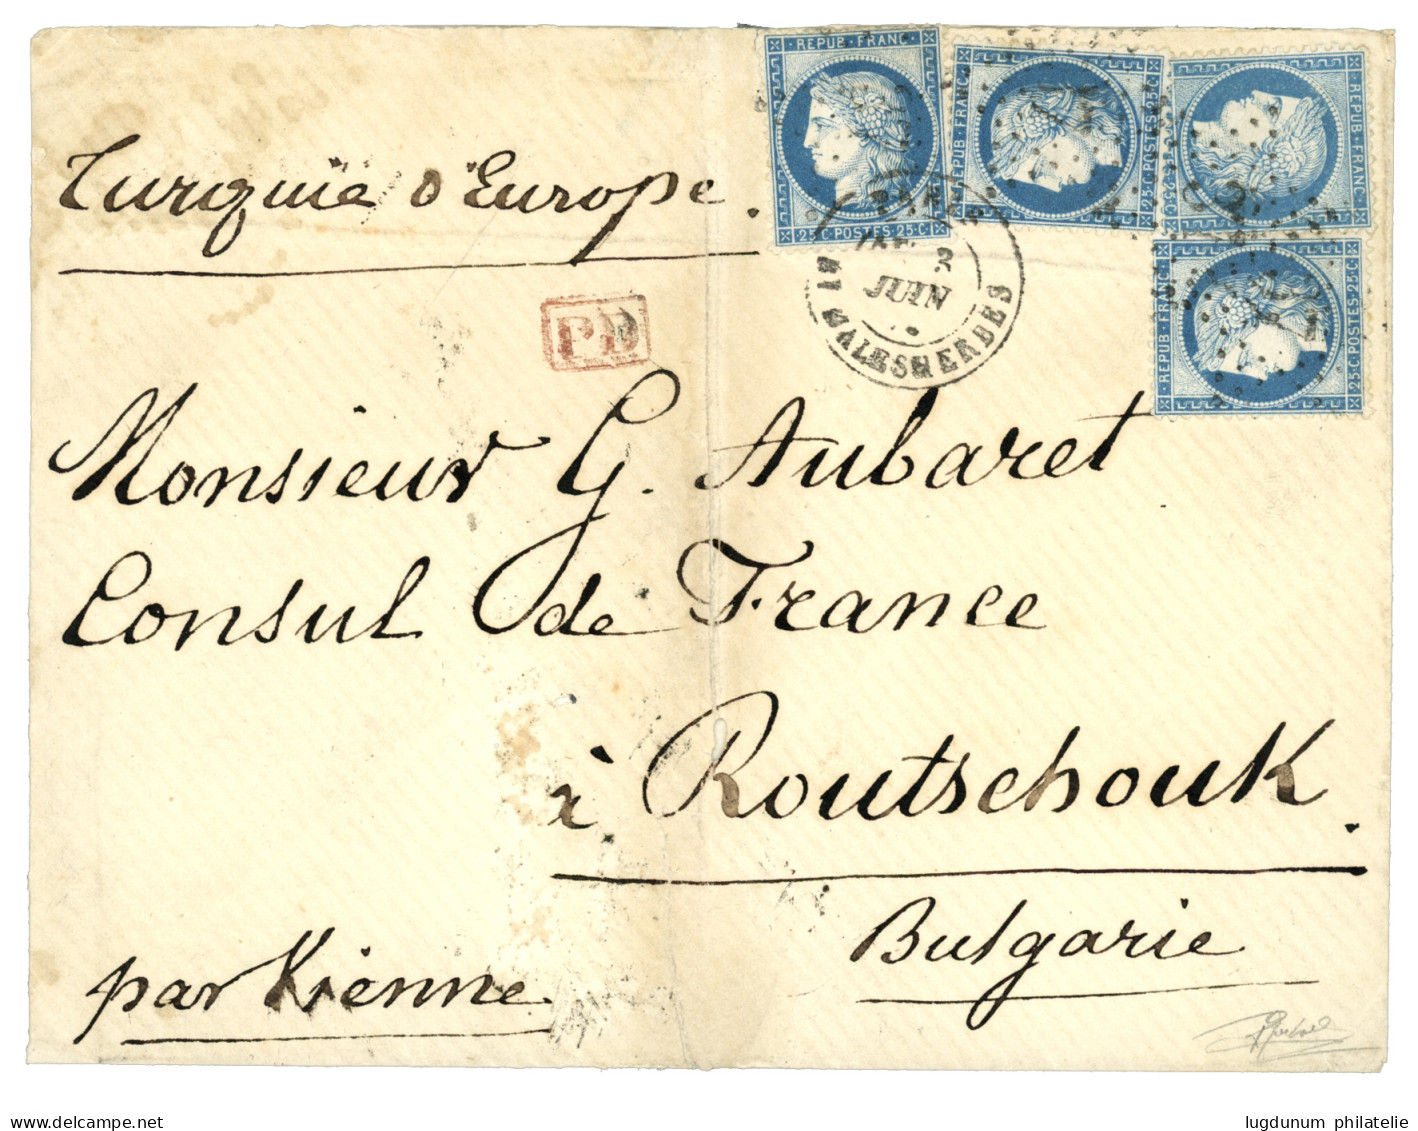 REPUB · FRANC ·
25 C · POSTES · 25 · C
REPUB · FRANC ·
25 C · POSTES · 25 C
REPUB · FRANC ·
REPUB · FRANC ·
25 C · POSTES · 25 C
Turquie d'Europe.
PARIS
2
JUIN
Bt MALESHERBES
PD
Monsieur G. Aubaret
Consul de France
à Routschouk.
Bulgarie
par Vienne
delcampe.net
lugdunum philatelie